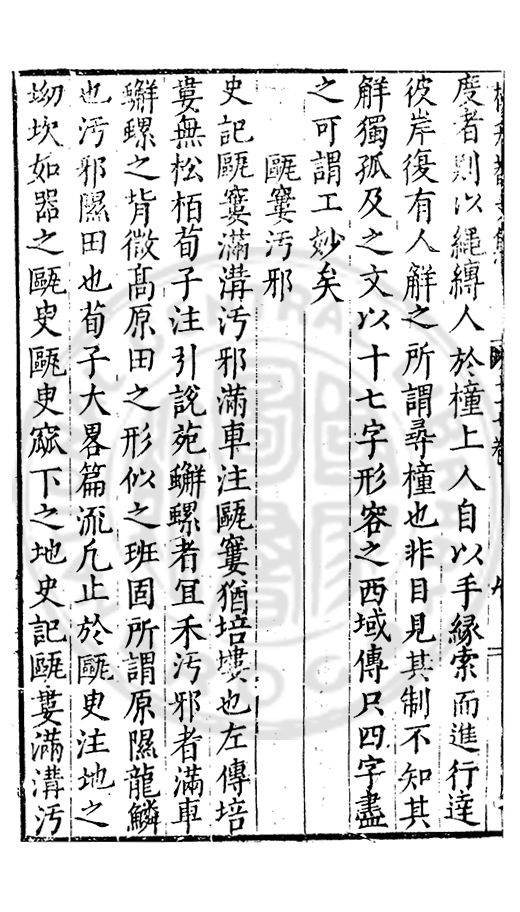 度者則以繩縳人於橦上人自以手縁索而進行達
彼岸復有人解之所謂尋橦也非目見其制不知其
解獨孤及之文以十七字形容之西域傳只四字盡
之可謂工妙矣
甌窶汚邪
史記甌窶滿溝汚邪滿車注甌窶猶培塿也左傳培
婁無松栢荀子注引說苑蠏螺者冝禾汚邪者滿車
蠏螺之背微髙原田之形似之班固所謂原隰龍鱗
也汚邪隰田也荀子大畧篇流丸止於甌臾注地之
坳坎如器之甌臾甌臾窳下之地史記甌窶滿溝汚